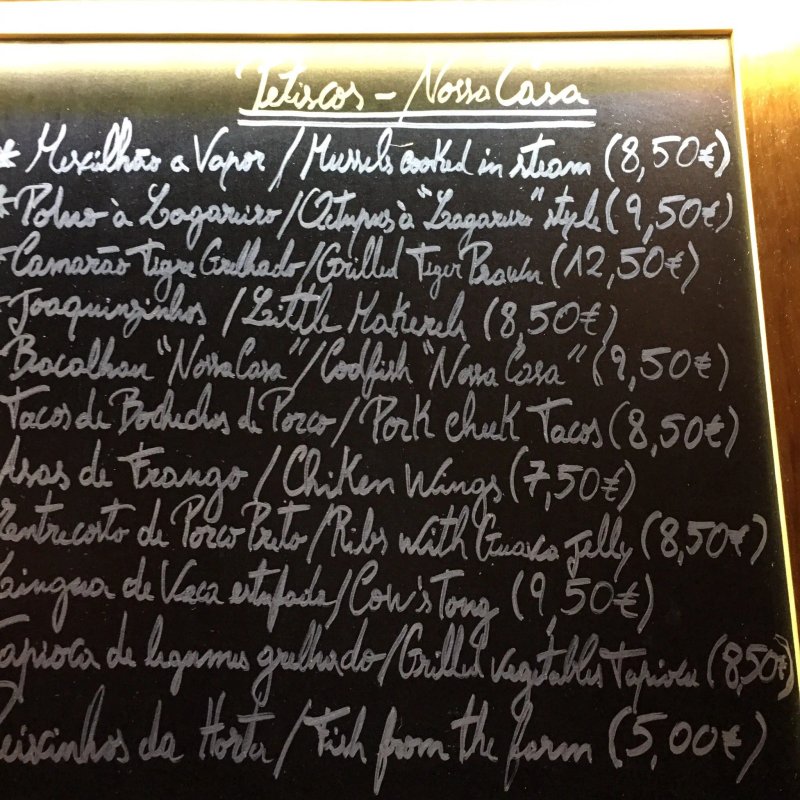 Petiscos - Nossa Casa
* Mexilhão a Vapor / Mussels cooked in steam (8,50€)
* Polvo à Lagareiro / Octupus à "Lagareiro" style (9,50€)
* Camarão Tigre Grelhado / Grilled Tiger Prawn (12,50€)
* Joaquinzinhos / Little Makerel (8,50€)
Bacalhau "Nossa Casa" / Codfish "Nossa Casa" (9,50€)
Tacos de Bochechas de Porco / Pork cheek Tacos (8,50€)
Asas de Frango / Chiken Wings (7,50€)
Entrecosto de Porco Preto / Ribs with Guava jelly (8,50€)
Lingua de Vaca estufada / Cow's Tong (9,50€)
Tapioca de legumes grelhado / Grilled vegetables Tapioca (8,50€)
Peixinhos da Horta / Fish from the farm (5,00€)